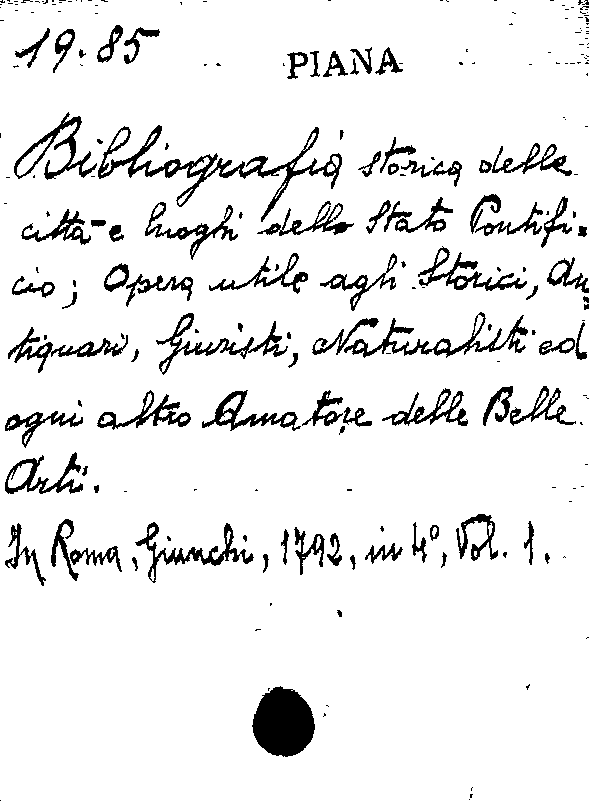 19.85
PIANA
Bibliografia storica delle
città e luoghi dello Stato Pontifi=
cio; Opera utile agli Storici, An=
tiquari, Giuristi, Naturalisti ed
ogni altro Amatore delle Belle
Arti.
In Roma, Giunchi, 1792, in 4°, Vol. 1.